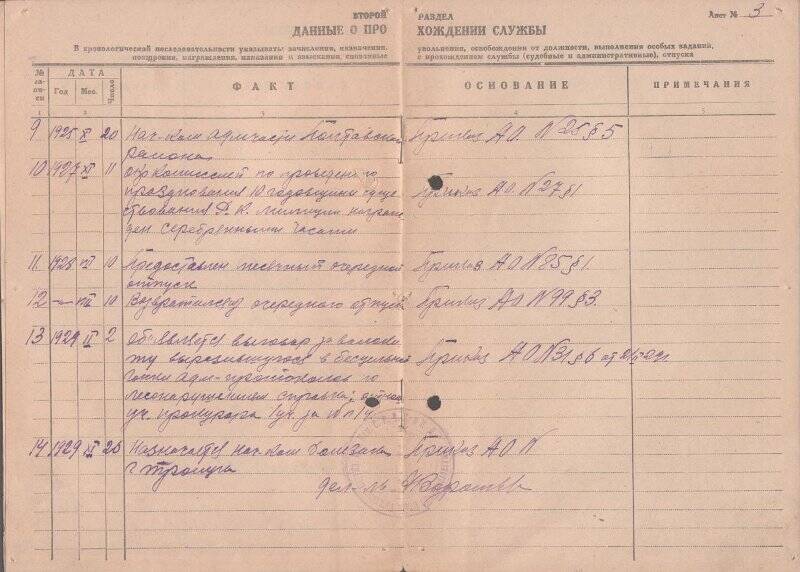 ВТОРОЙ РАЗДЕЛ
Лист № 3
ДАННЫЕ О ПРОХОЖДЕНИИ СЛУЖБЫ
В хронологической последовательности указывать: зачисления, назначения, увольнения, освобождения от должности, выполнения особых заданий,
поощрения, награждения, наказания и взыскания, связанные с прохождением службы (судебные и административные), отпуска
№ за-
пи-
си
ДАТА
Год Мес. Число
ФАКТ
ОСНОВАНИЕ
ПРИМЕЧАНИЯ
1 2 3 4 5
9 1925 X 20 Нач-ком адмчасти
района Приказ АО. N 25 § 5
10 1927 XI 11 Окркомиссией по проведению
празднования 10 годовщины суще
ствования Р. К. милиции награж
ден серебренными часами
Приказ АО. N 27 § 1
11 1928 VI 10 Предоставлен месячный очередной
отпуск
Приказ АО N 85 § 1.
12 — VII 10 Возвратился очередного отпуска Приказ АО N 99 § 3.
13 1929 II 2 Объявляется выговор за волоки
ту выразившуюся в бесцельной
гонки адм-протоколов по
лесонарушениям справки,
уч. прокурора 1 уч. за N
Приказ АО N 31 § 6 от
14 1929 XI 25 Назначается нач-ком
г Троицка
Приказ АО N